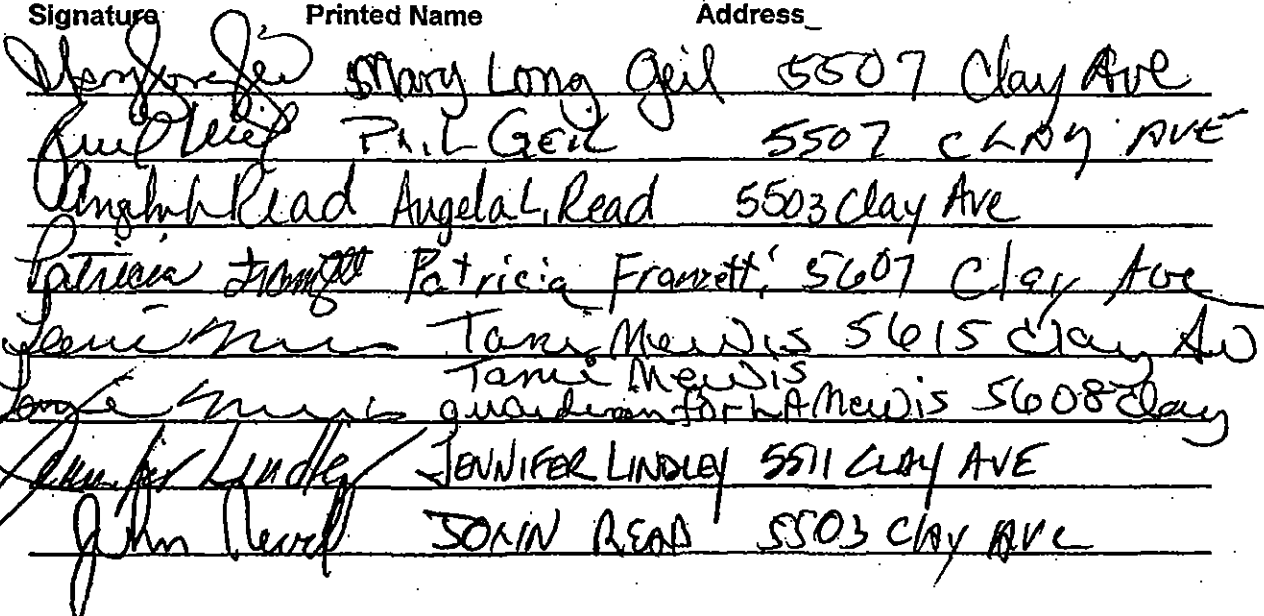 Signature Printed Name Address
Mary Long Geil Mary Long Geil 5507 Clay Ave
Phil Geil Phil Geil 5507 CLAY AVE
Angela L Read Angela L. Read 5503 Clay Ave
Patricia Franzetti Patricia Franzetti 5607 Clay Ave
Tami Mewis 5615 Clay Av
Tami Mewis
guardian for LA Mewis 5608 Clay
Jennifer Lindley JENNIFER LINDLEY 5511 CLAY AVE
John Read JOHN READ 5503 Clay AVE